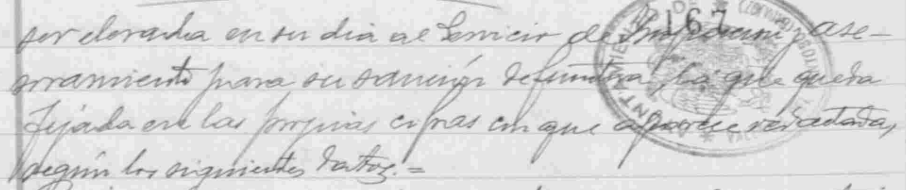 ser elevada en su dia al Servicio de Inspección y ase-
soramiento para su sanción definitiva, la que queda
fijada en las propias cifras en que aparece redactada,
según los siguientes datos.=
167